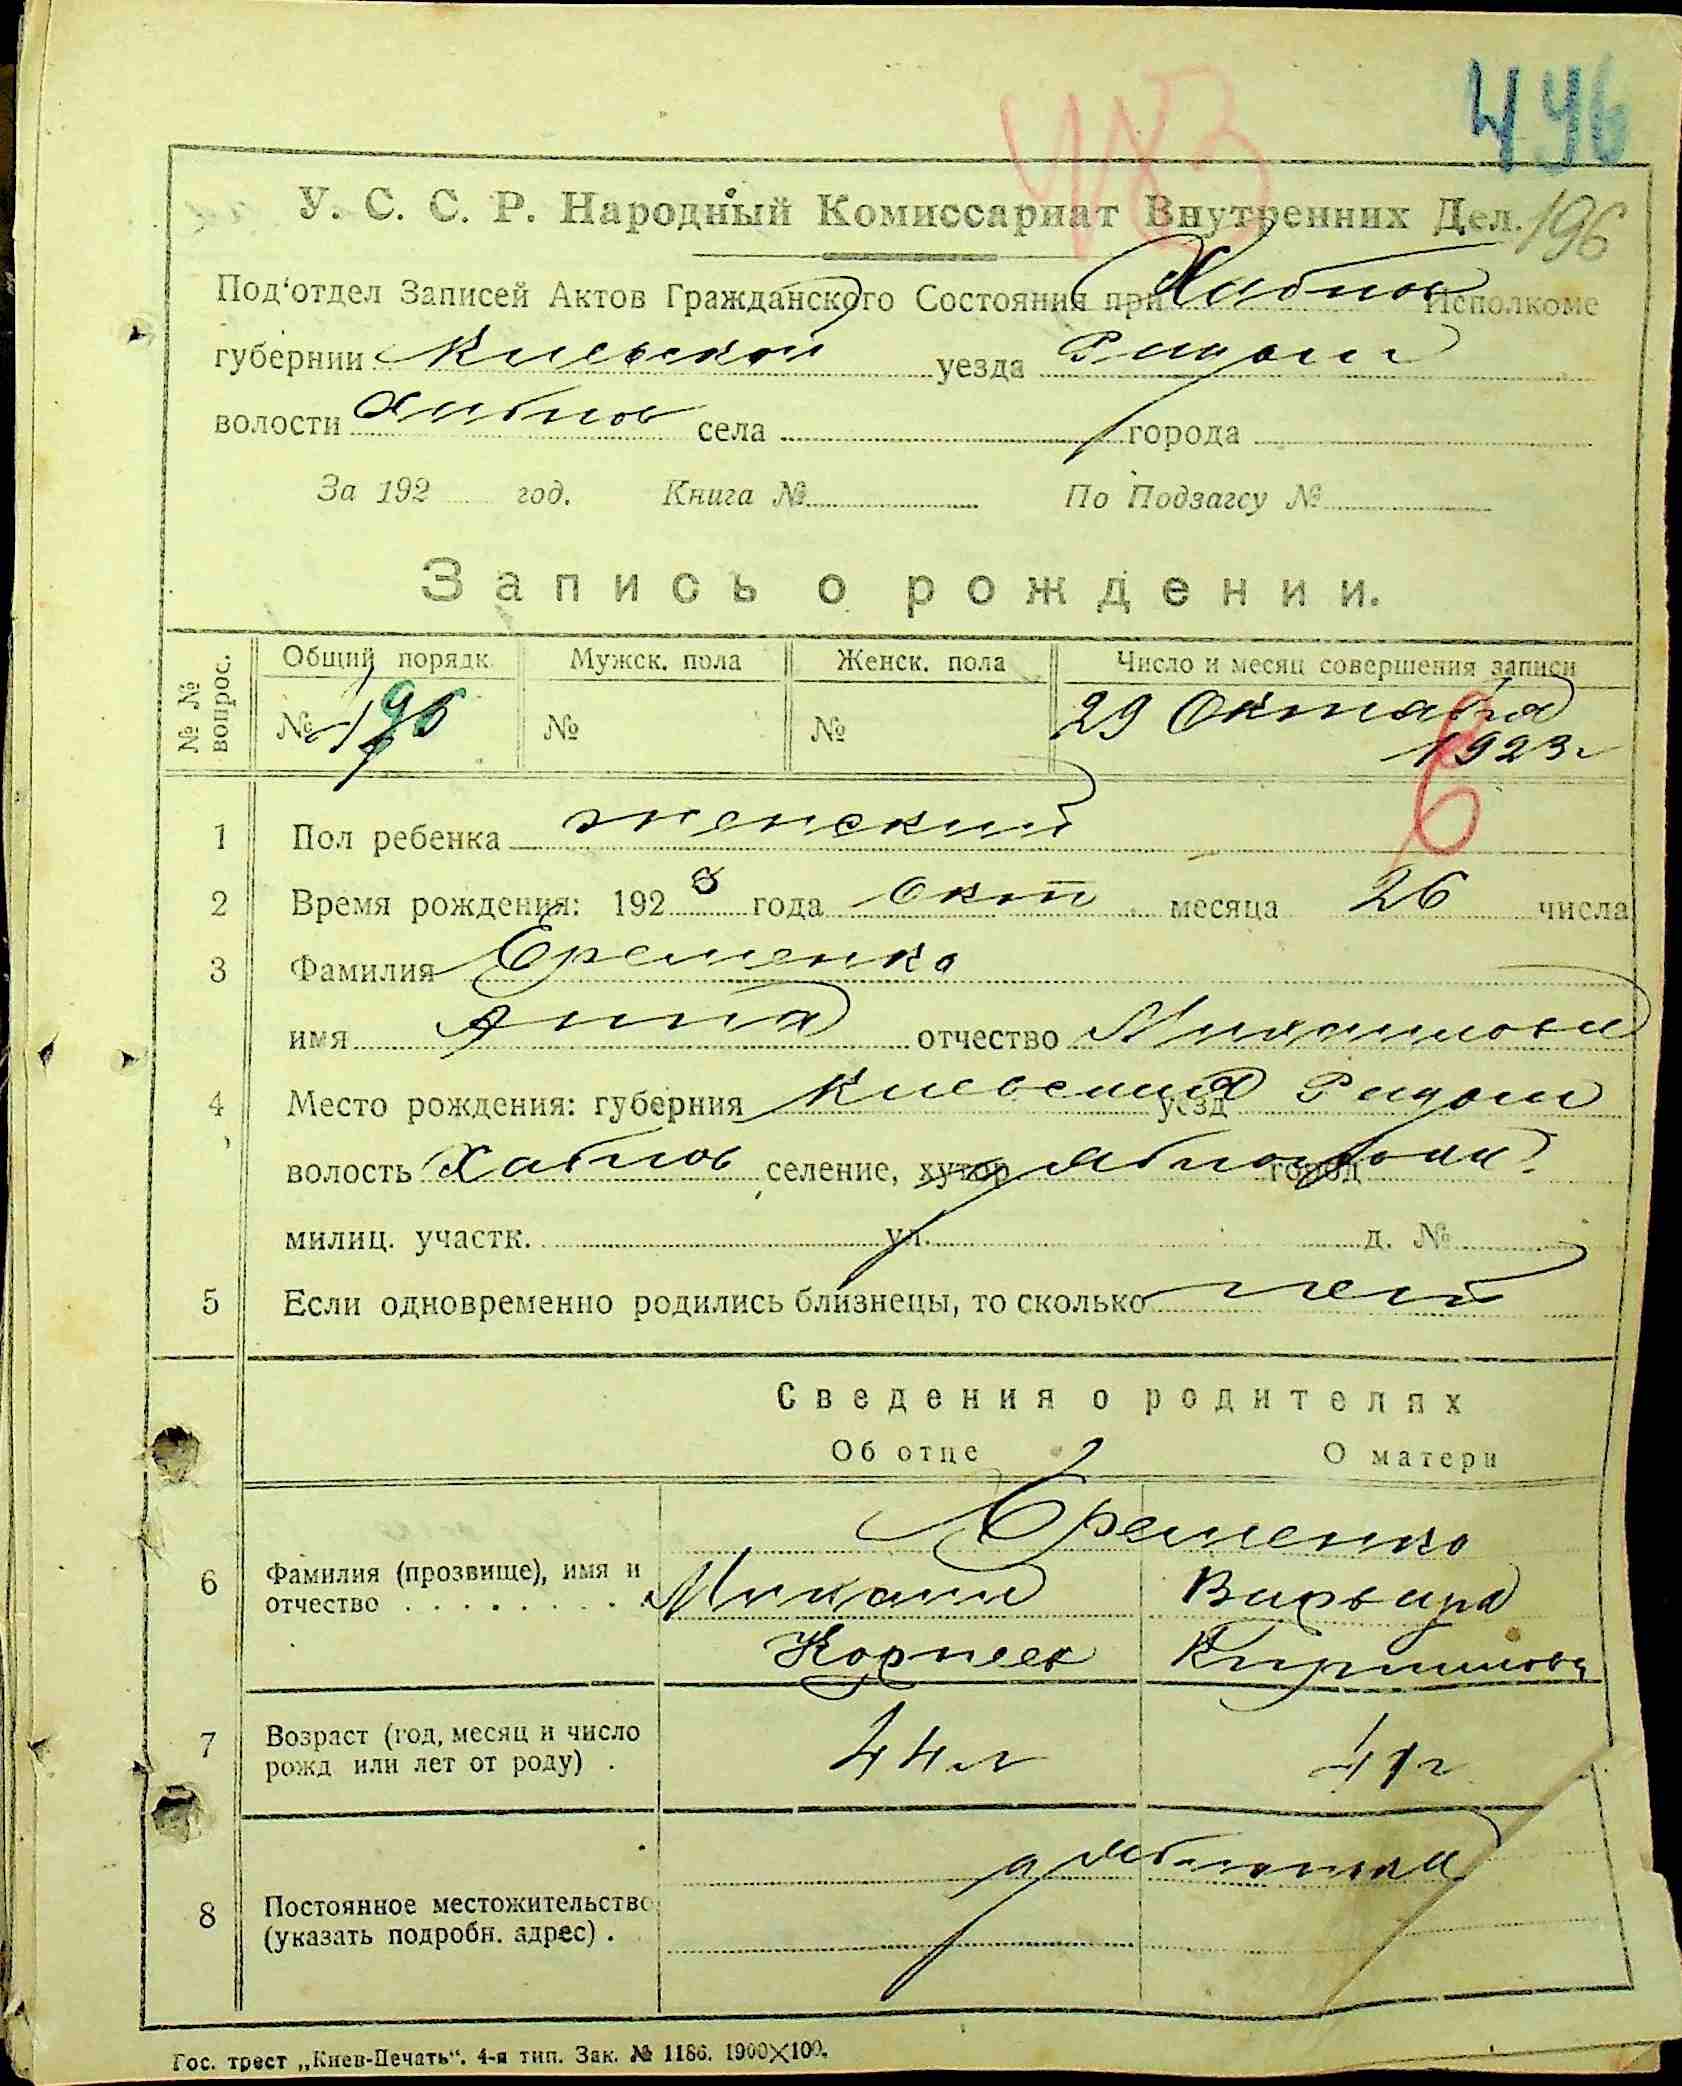 483
496
У. С. С. Р. Народный Комиссариат Внутренних Дел. 196
Под'отдел Записей Актов Гражданского Состояния при Хабнов Исполкоме
губернии Киевской уезда Радом
волости Хабнов села города
За 192 год. Книга № По Подзагсу №
Запись о рождении.
№№ вопрос. Общий порядк. Мужск. пола Женск. пола Число и месяц совершения записи
№ 196 № № 29 Октября
1923 г
6
1 Пол ребенка женский
2 Время рождения: 1923 года Окт месяца 26 числа
3 Фамилия Еременко
имя Анна отчество Михаиловн
4 Место рождения: губерния Киевская уезд Радом
волость Хабнов селение, хутор город
милиц. участк. ул. д. №
5 Если одновременно родились близнецы, то сколько нет
Сведения о родителях
Об отце О матери
Еременко
6 Фамилия (прозвище), имя и отчество Михаил Варвара
Корнеев Кирилловн
7 Возраст (год, месяц и число рожд или лет от роду) . 44 л 41 г
8 Постоянное местожительство (указать подробн. адрес) .
Гос. трест „Киев-Печать“. 4-я тип. Зак. № 1186. 1900×100.